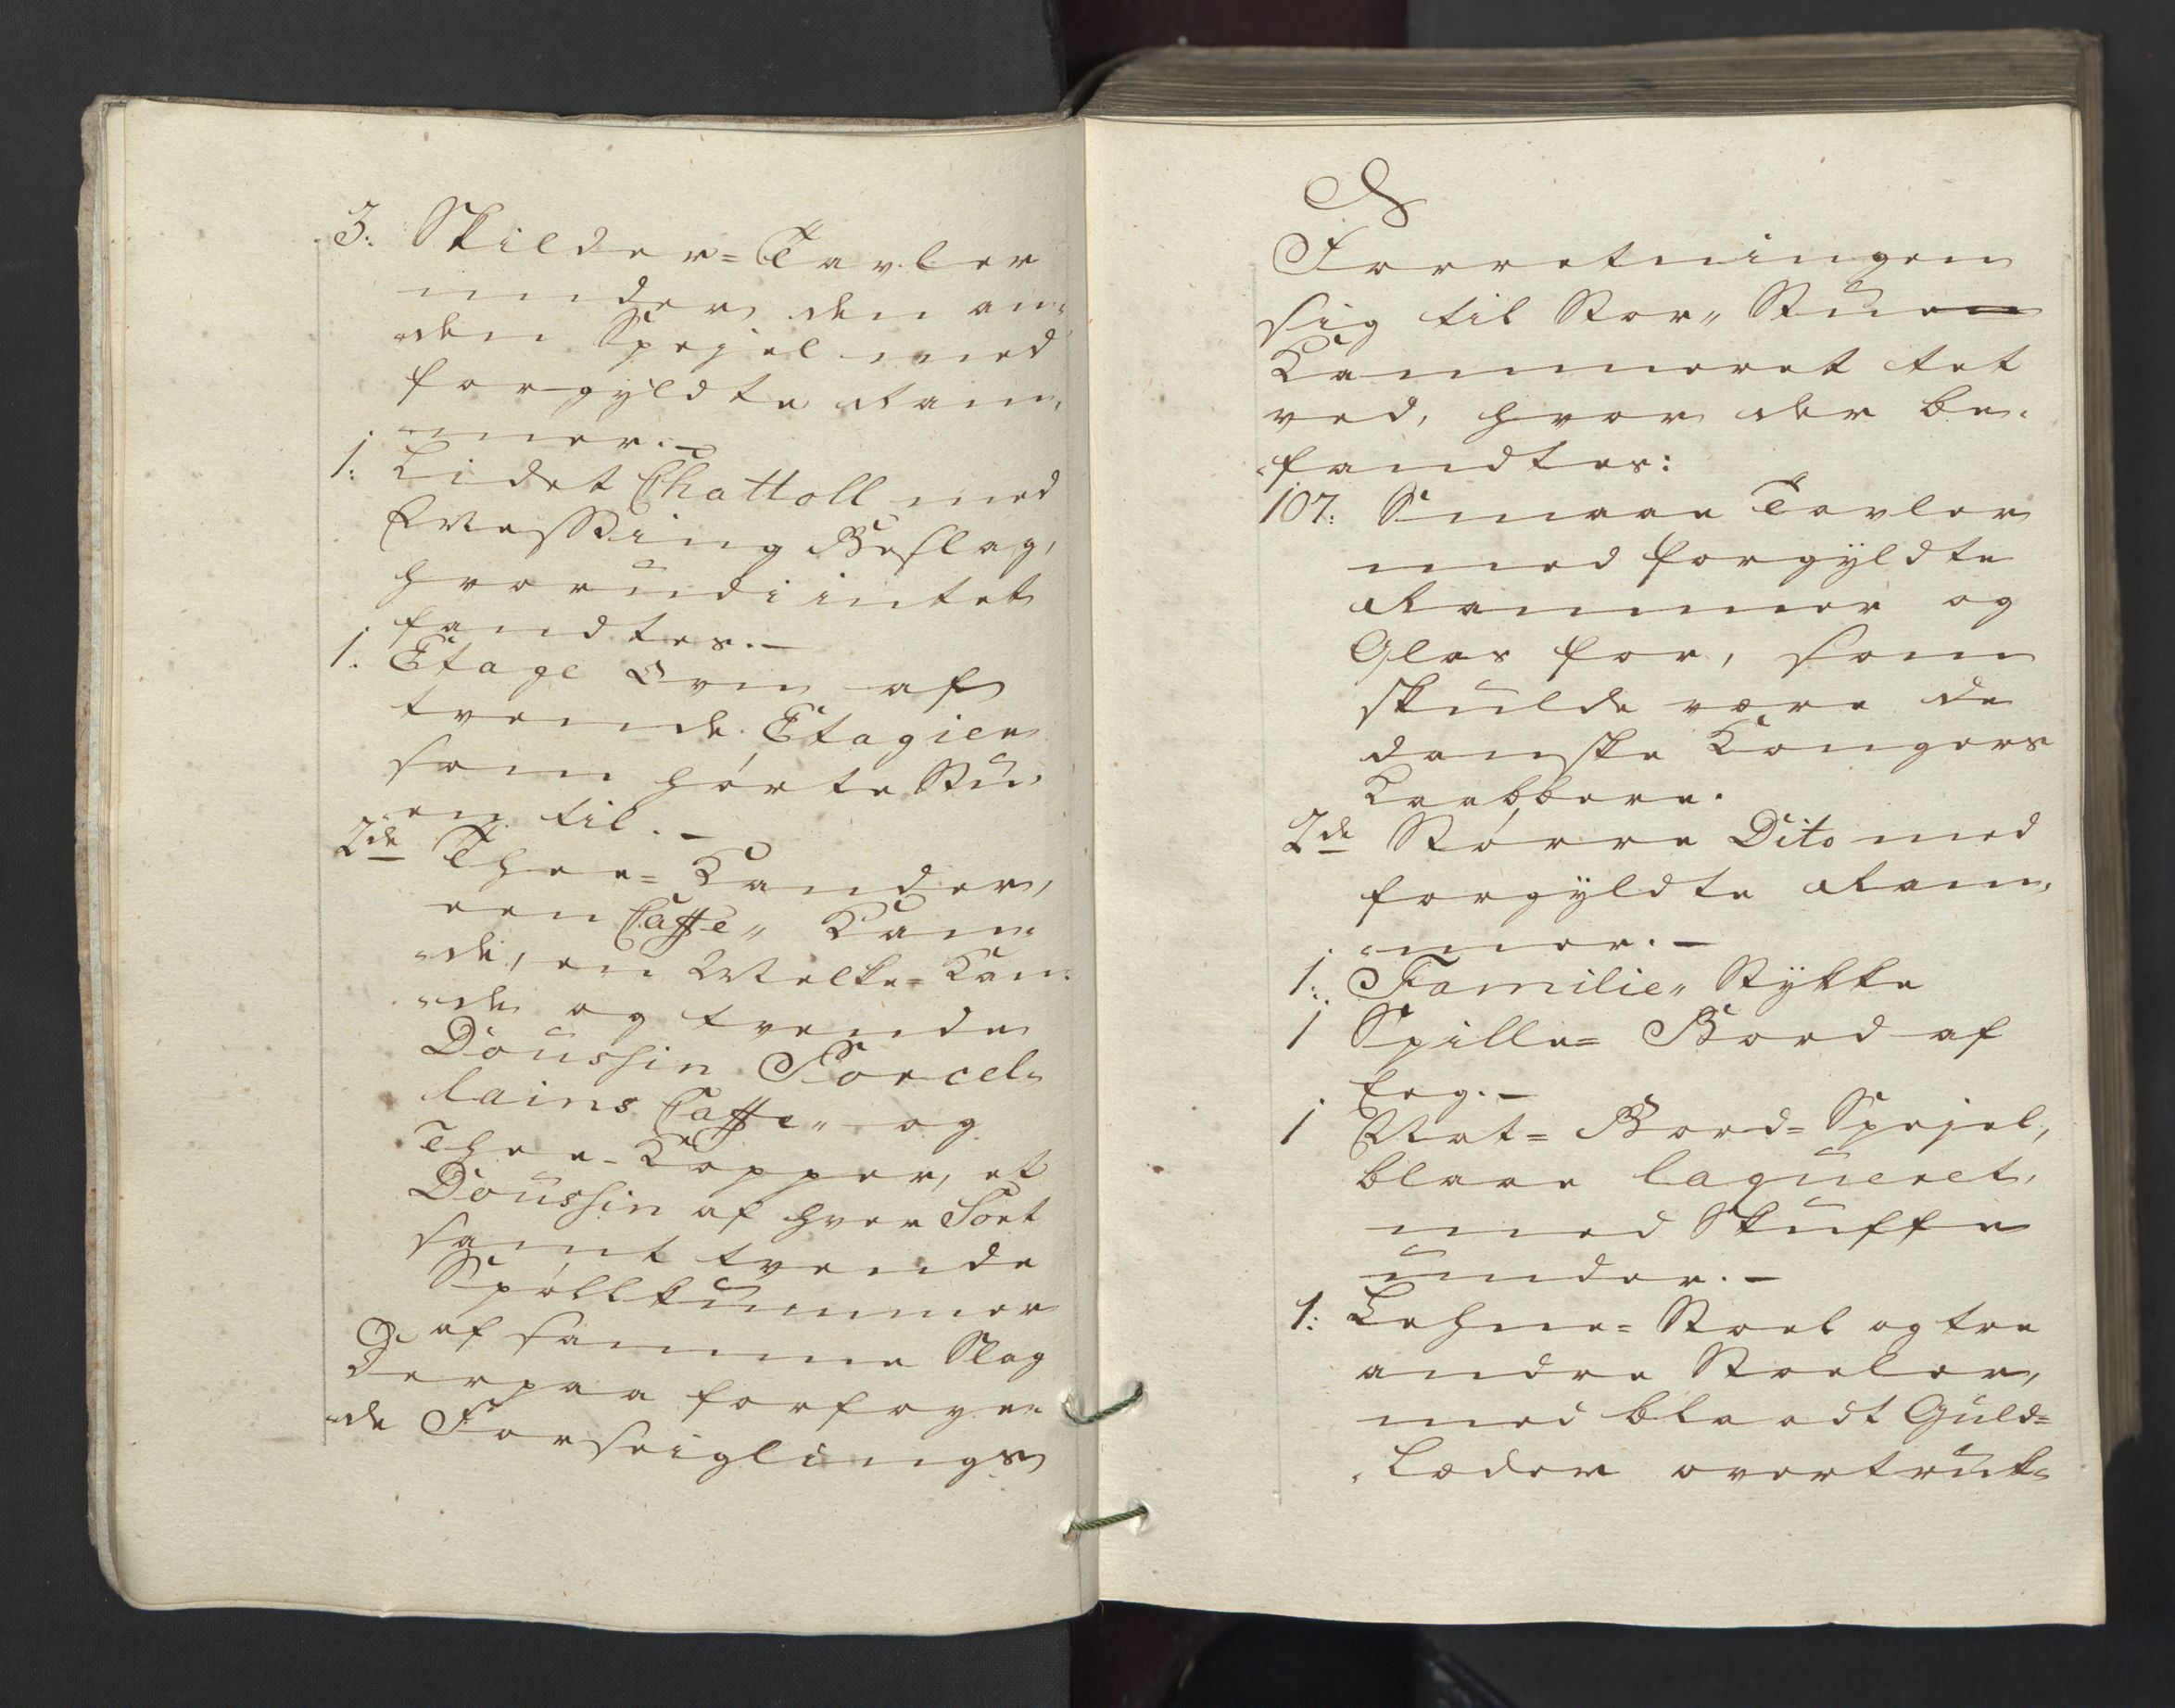 3: Skilder=Tavler
under den an„
„den Spejel med
forgyldte Ram„
„mer. –
1: Lidet Chattoll med
Messing Beslag,
hvorudi intet
fandtes. –
1. Etage Ovn af
tvende Etagier
som hörte Stu„
„en til. –
2de Thee=Kander,
een Caffe„ Kan„
„de, en Melke=Kan„
„de og tvende
Doussin Porcel„
lains Caffe„ og
Thee=Kopper, et
Doussin af hver Sort
samt tvende
Spöllkummer
af samme Slag
Derpaa forföye„
„de Forseiglings
Forretningen
sig til Stor„ Stue
Kammeret tet
ved, hvor der be„
„fandtes:
107: Smaae Tavler
med forgyldte
Rammer og
Glas for, som
skulde være de
danske Kongers
Kaabbere.
2de Större Dito med
forgyldte Ram„
„mer. –
1: Familie„ Stykke
1 Spille= Bord af
Eeg. –
1 Nat= Bord= Spejel,
blaae laqueret,
med Skuffe
under. –
1: Lehne= Stoel og tre
andre Stoeler,
med blaadt Guld=
„Læder overtruk„